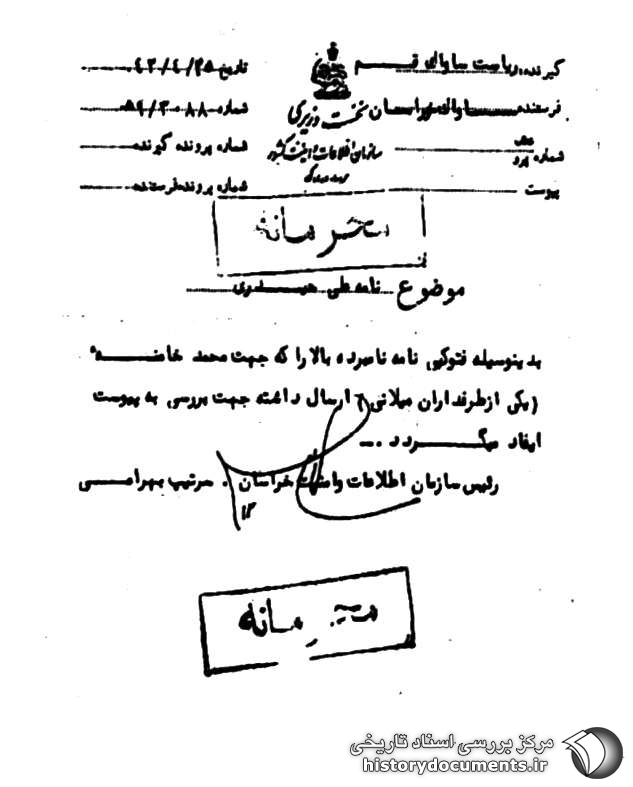 گیرنده: ریاست ساواک قم
فرستنده: ساواک خراسان
شماره
پیوست
نخست وزیری
سازمان اطلاعات و امنیت کشور
تاریخ
شماره
شماره پرونده گیرنده
شماره پرونده فرستنده
محرمانه
موضوع نامه علی
بدینوسیله فتوکپی نامه نامبرده بالا را که جهت محمد
(یکی از طرفداران میلانی) ارسال داشته جهت بررسی به پیوست
ایفاد میگردد .
رئیس سازمان اطلاعات و امنیت خراسان . سرتیپ بهرامی
محرمانه
مرکز بررسی اسناد تاریخی
historydocuments.ir